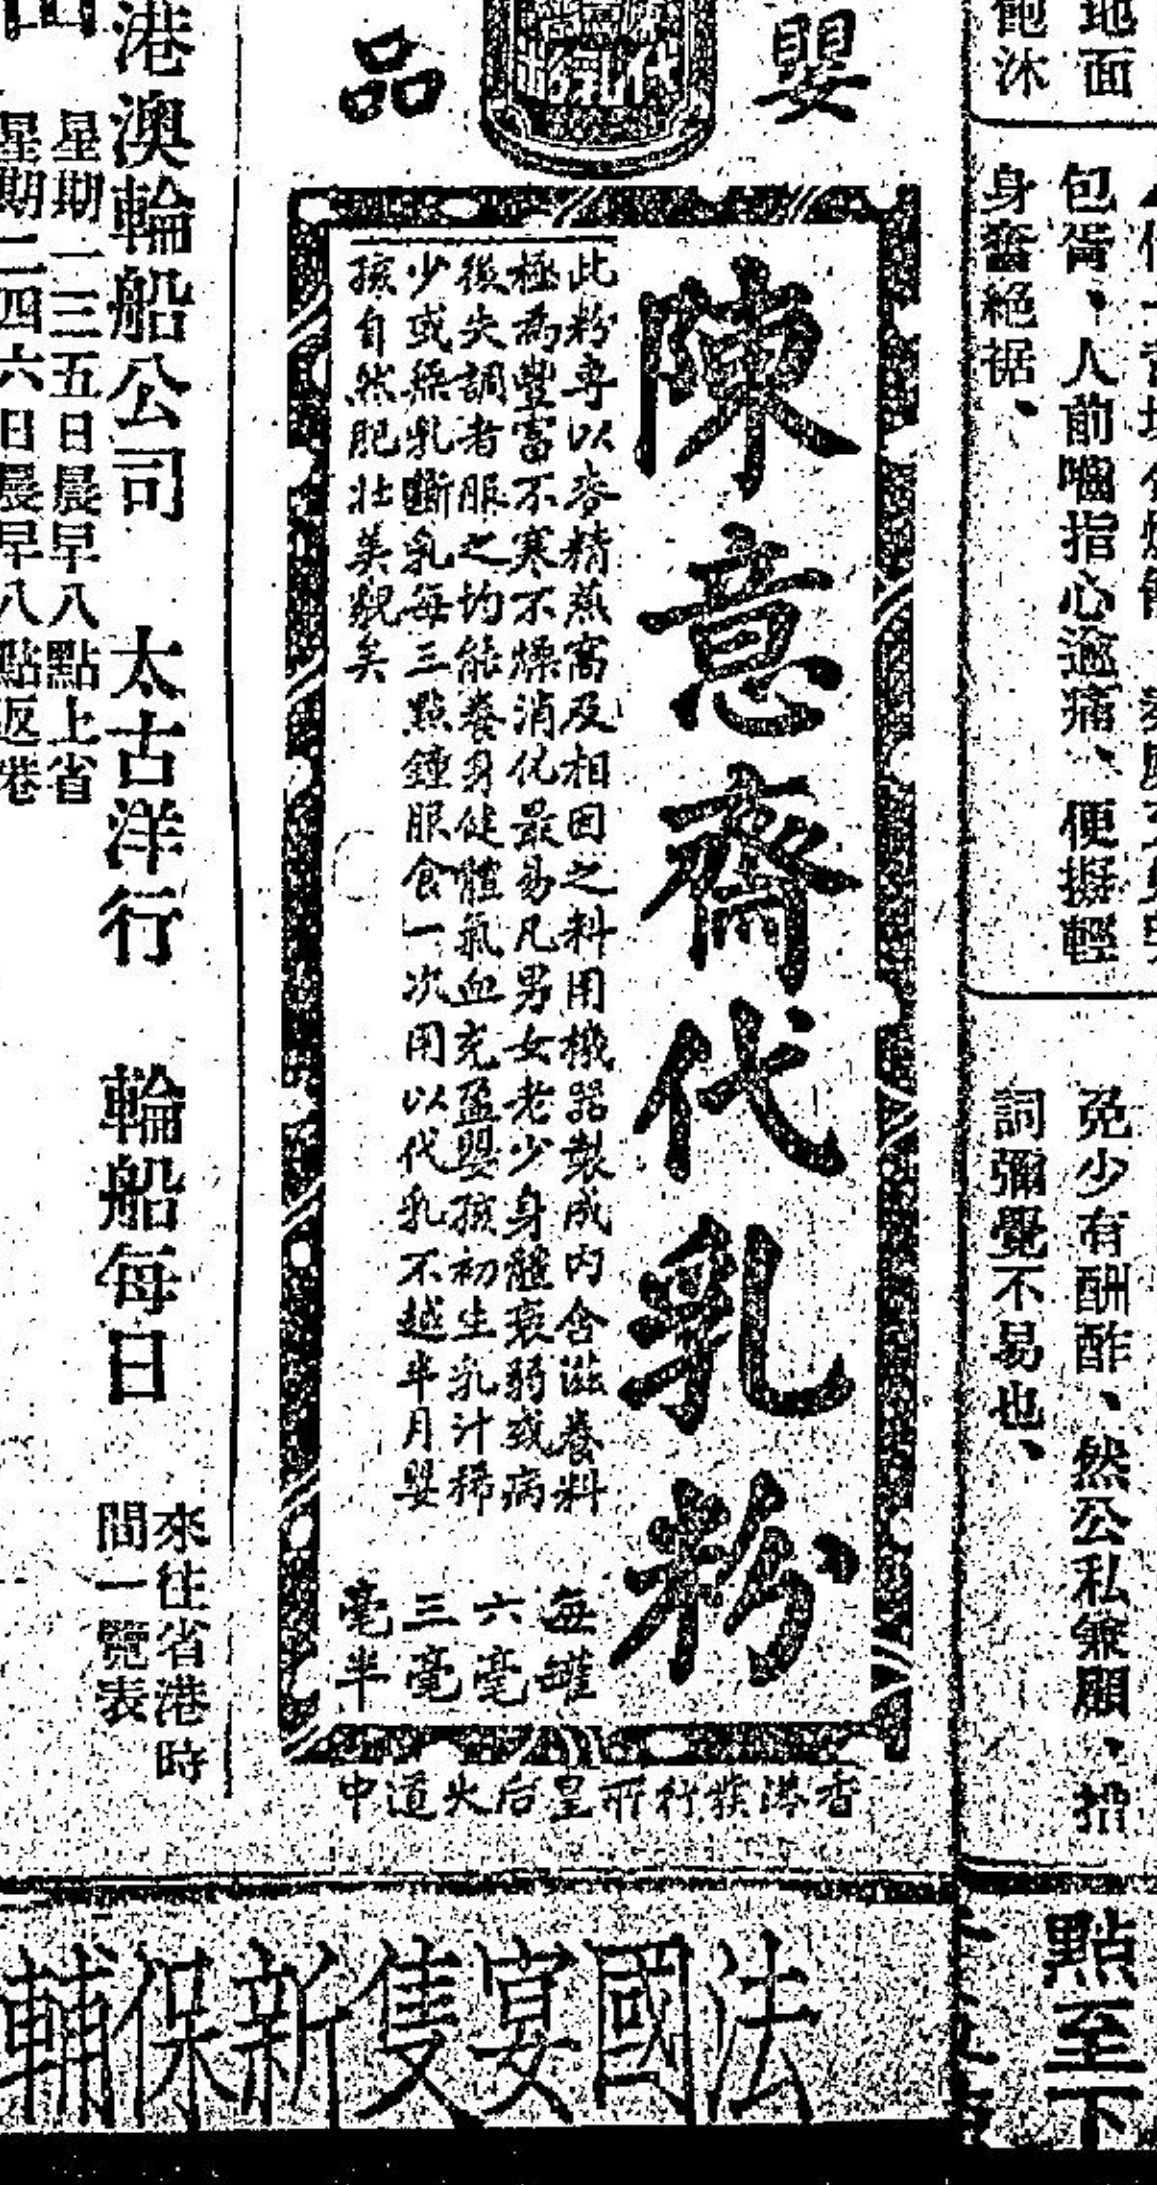 地面
飽沐
包胥、人前嚙指心逾痛、便擬輕
身奮絕裾、
免少有酬酢、然公私兼顧、措
詞彌覺不易也、
點至下
嬰
品
代乳粉
陳意齋代乳粉
此粉專以麥精燕窩及相因之料用機器製成內含滋養料
極為豐富不寒不燥消化最易凡男女老少身體衰弱或病
後失調者服之均能養身健體氣血充盈嬰孩初生乳汁稀
少或缺乳斷乳每三點鐘服食一次用以代乳不越半月嬰
孩自然肥壯美觀矣
每罐
六毫
三毫
毫半
香港發行所皇后大道中
港澳輪船公司 太古洋行 輪船每日
來往省港時
間一覽表
星期一三五日晨早八點上省
星期二四六日晨早八點返港
法國宴隻新保輔